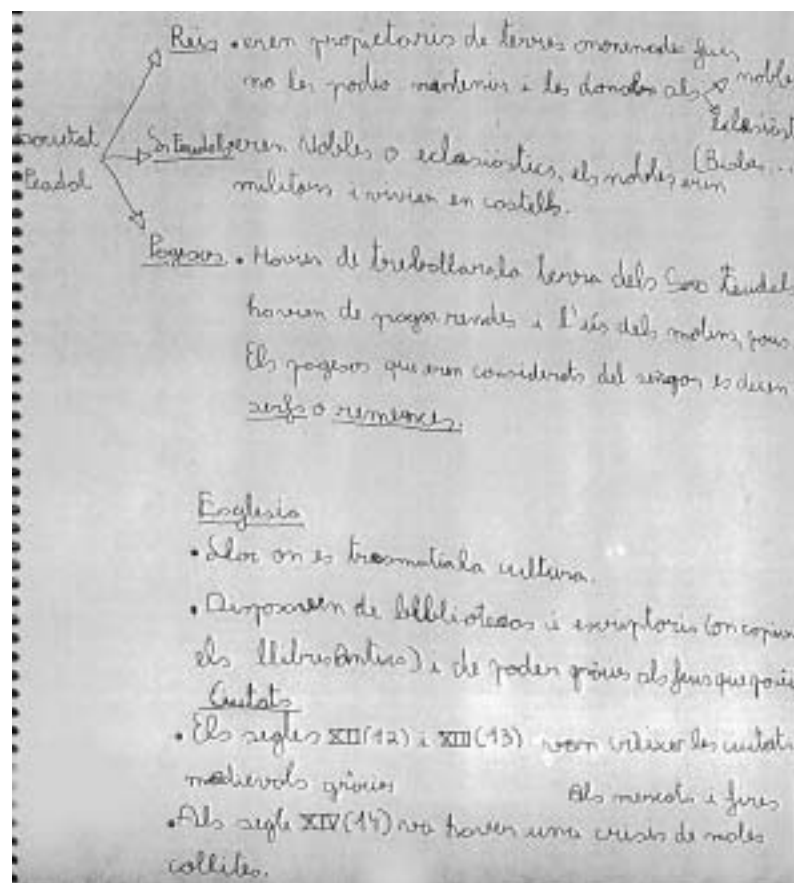 Reis • eren propietaris de terres anomenades feus,
no les podia mantenir i les donaba als nobles
Eclesiàst
societat Srs Feudals eren Nobles o eclesiàstics, els nobles eren (Bisbes...
Feudal militars i vivien en castells.
Pagesos • Havien de treballar a la terra dels Srs Feudals
havien de pagar rendes i l'ús dels molins, pous
Els pagesos que eren considerats del senyor es deien
serfs o remences.
Església
• Lloc on es trasmetia la cultura.
• Disposaven de biblioteques i escriptoris (on copiaven
els llibres Antics) i de poder gràcies als feus que
Ciutats
• Els segles XII(12) i XIII(13) van créixer les ciutats
medievals gràcies Als mercats i fires
• Als segle XIV(14) va haver una crisis de males
collites.